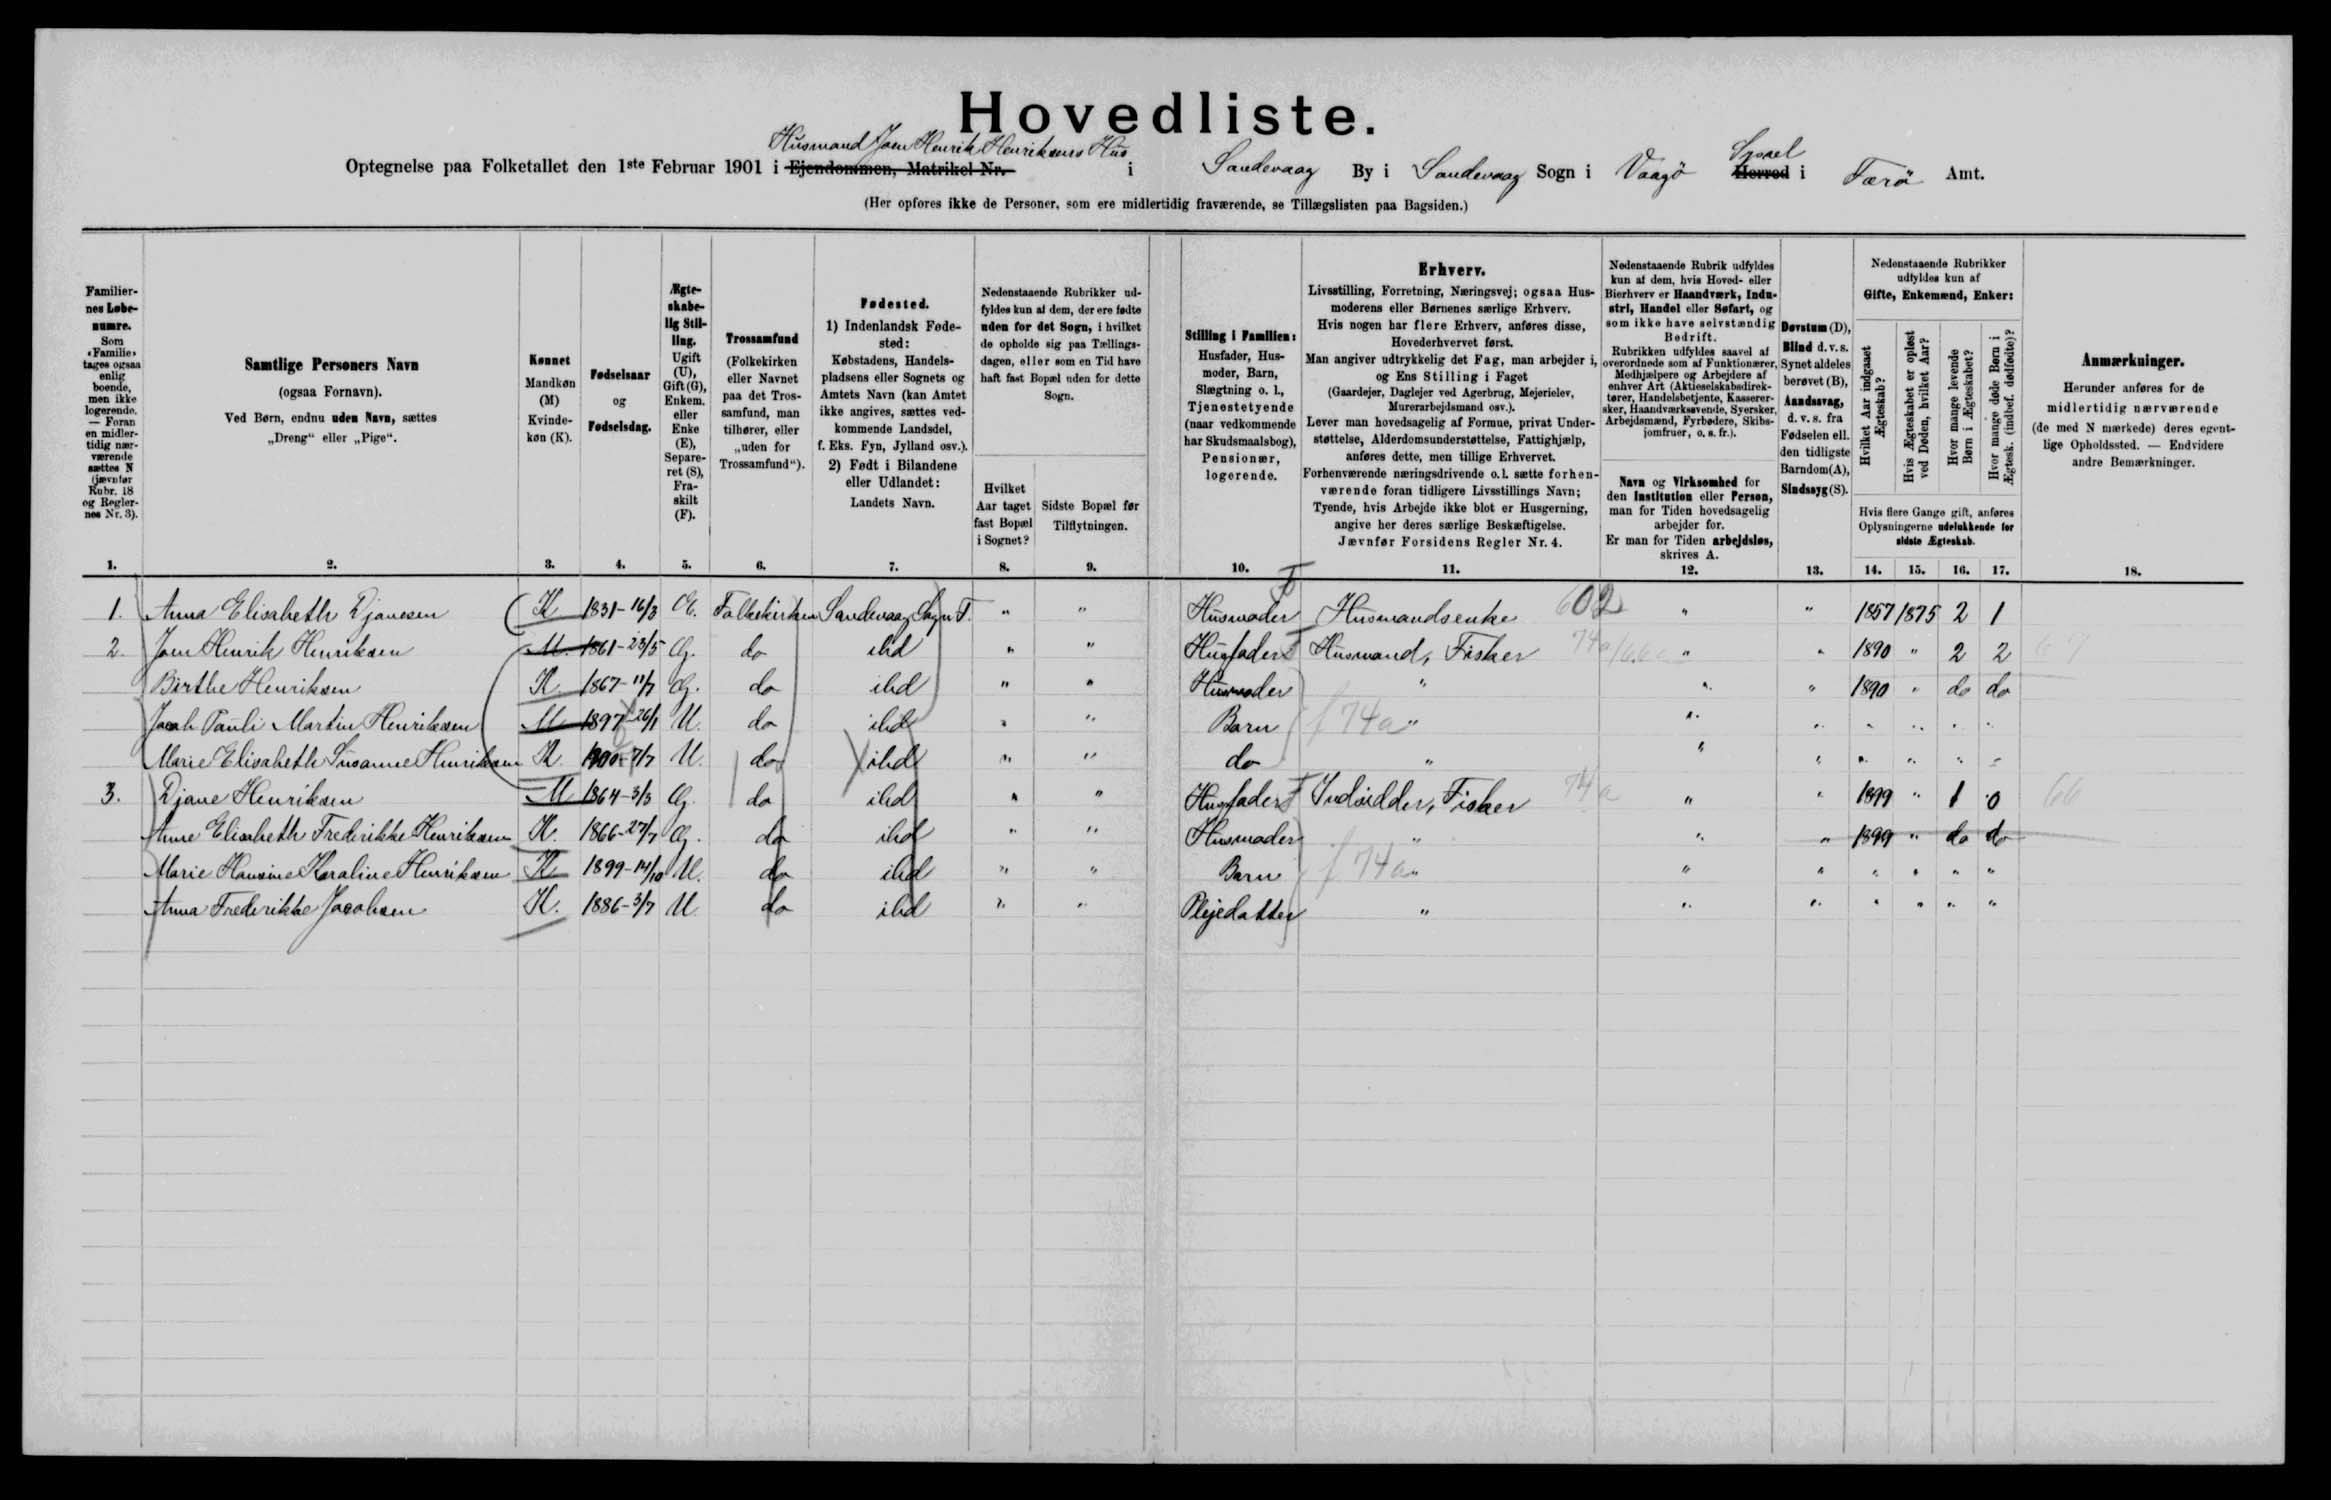 Hovedliste.
Husmand Joen Henrik Henriksens Hus
Syssel
Optegnelse paa Folketallet den 1ste Februar 1901 i Ejendommen, Matrikel Nr. i Sandevaag By i Sandevaag Sogn i Vaagö Herred i Færö Amt.
(Her opføres ikke de Personer, som ere midlertidig fraværende, se Tillægslisten paa Bagsiden.)
Familiernes Løbenumre. Som «Familie» tages ogsaa enlig boende, men ikke logerende. — Foran en midlertidig nærværende sættes N (jævnfør Rubr. 18 og Reglernes Nr. 3).
Samtlige Personers Navn (ogsaa Fornavn). Ved Børn, endnu uden Navn, sættes „Dreng“ eller „Pige“.
Kønnet Mandkøn (M) Kvindekøn (K).
Fødselsaar og Fødselsdag.
Ægteskabelig Stilling. Ugift (U), Gift (G), Enkem. eller Enke (E), Separeret (S), Fraskilt (F).
Trossamfund (Folkekirken eller Navnet paa det Trossamfund, man tilhører, eller „uden for Trossamfund“).
Fødested. 1) Indenlandsk Fødested: Købstadens, Handelspladsens eller Sognets og Amtets Navn (kan Amtet ikke angives, sættes vedkommende Landsdel, f. Eks. Fyn, Jylland osv.). 2) Født i Bilandene eller Udlandet: Landets Navn.
Nedenstaaende Rubrikker udfyldes kun af dem, der ere fødte uden for det Sogn, i hvilket de opholde sig paa Tællingsdagen, eller som en Tid have haft fast Bopæl uden for dette Sogn.
Hvilket Aar taget fast Bopæl i Sognet?
Sidste Bopæl før Tilflytningen.
Stilling i Familien: Husfader, Husmoder, Barn, Slægtning o. l., Tjenestetyende (naar vedkommende har Skudsmaalsbog), Pensionær, logerende.
Erhverv. Livsstilling, Forretning, Næringsvej; ogsaa Husmoderens eller Børnenes særlige Erhverv. Hvis nogen har flere Erhverv, anføres disse, Hovederhvervet først. Man angiver udtrykkelig det Fag, man arbejder i, og Ens Stilling i Faget (Gaardejer, Daglejer ved Agerbrug, Mejerielev, Murerarbejdsmand osv.). Lever man hovedsagelig af Formue, privat Understøttelse, Alderdomsunderstøttelse, Fattighjælp, anføres dette, men tillige Erhvervet. Forhenværende næringsdrivende o.l. sætte forhenværende foran tidligere Livsstillings Navn; Tyende, hvis Arbejde ikke blot er Husgerning, angive her deres særlige Beskæftigelse. Jævnfør Forsidens Regler Nr. 4.
Nedenstaaende Rubrik udfyldes kun af dem, hvis Hoved- eller Bierhverv er Haandværk, Industri, Handel eller Søfart, og som ikke have selvstændig Bedrift. Rubrikken udfyldes saavel af overordnede som af Funktionærer, Medhjælpere og Arbejdere af enhver Art (Aktieselskabsdirektører, Handelsbetjente, Kasserersker, Haandværksøvende, Syersker, Arbejdsmænd, Fyrbødere, Skibsjomfruer, o. s. fr.).
Navn og Virksomhed for den Institution eller Person, man for Tiden hovedsagelig arbejder for. Er man for Tiden arbejdsløs, skrives A.
Døvstum (D), Blind d. v. s. Synet aldeles berøvet (B), Aandssvag, d. v. s. fra Fødselen ell. den tidligste Barndom (A), Sindssyg (S).
Nedenstaaende Rubrikker udfyldes kun af Gifte, Enkemænd, Enker:
Hvilket Aar indgaaet Ægteskab?
Hvis Ægteskabet er opløst ved Døden, hvilket Aar?
Hvor mange levende Børn i Ægteskabet?
Hvor mange døde Børn i Ægtesk. (indbef. dødfødte)?
Hvis flere Gange gift, anføres Oplysningerne udelukkende for sidste Ægteskab.
Anmærkninger. Herunder anføres for de midlertidig nærværende (de med N mærkede) deres egentlige Opholdssted. — Endvidere andre Bemærkninger.
1. 2. 3. 4. 5. 6. 7. 8. 9. 10. 11. 12. 13. 14. 15. 16. 17. 18.
1. Anna Elisabeth Djonesen K 1831-16/3 E. Folkekirken Sandevaag Sogn F. " " Husmoder Husmandsenke 602 " " 1857 1875 2 1
2. Joen Henrik Henriksen M. 1861-23/5 G. do ibd " " Husfader Husmand, Fisker 74a " " 1890 " 2 2 67
Birthe Henriksen K 1867-11/7 G. do ibd " " Husmoder " " " 1890 " do do
Jacob Pauli Martin Henriksen M 1897-26/1 U. do ibd " " Barn 74a " " " " " " "
Marie Elisabeth Susanne Henriksen K. 1900-7/7 U. do ibd " " do " " " " " " "
3. Djone Henriksen M 1864-3/3 G. do ibd " " Husfader Indsidder, Fisker 74a " " 1899 " 1 0 66
Anne Elisabeth Frederikke Henriksen K. 1866-27/7 G. do ibd " " Husmoder " " " 1899 " do do
Marie Hansine Karoline Henriksen K 1899-14/10 U. do ibd " " Barn 74a " " " " " " "
Anna Frederikke Jacobsen K. 1886-3/7 U. do ibd " " Plejedatter " " " " " " "